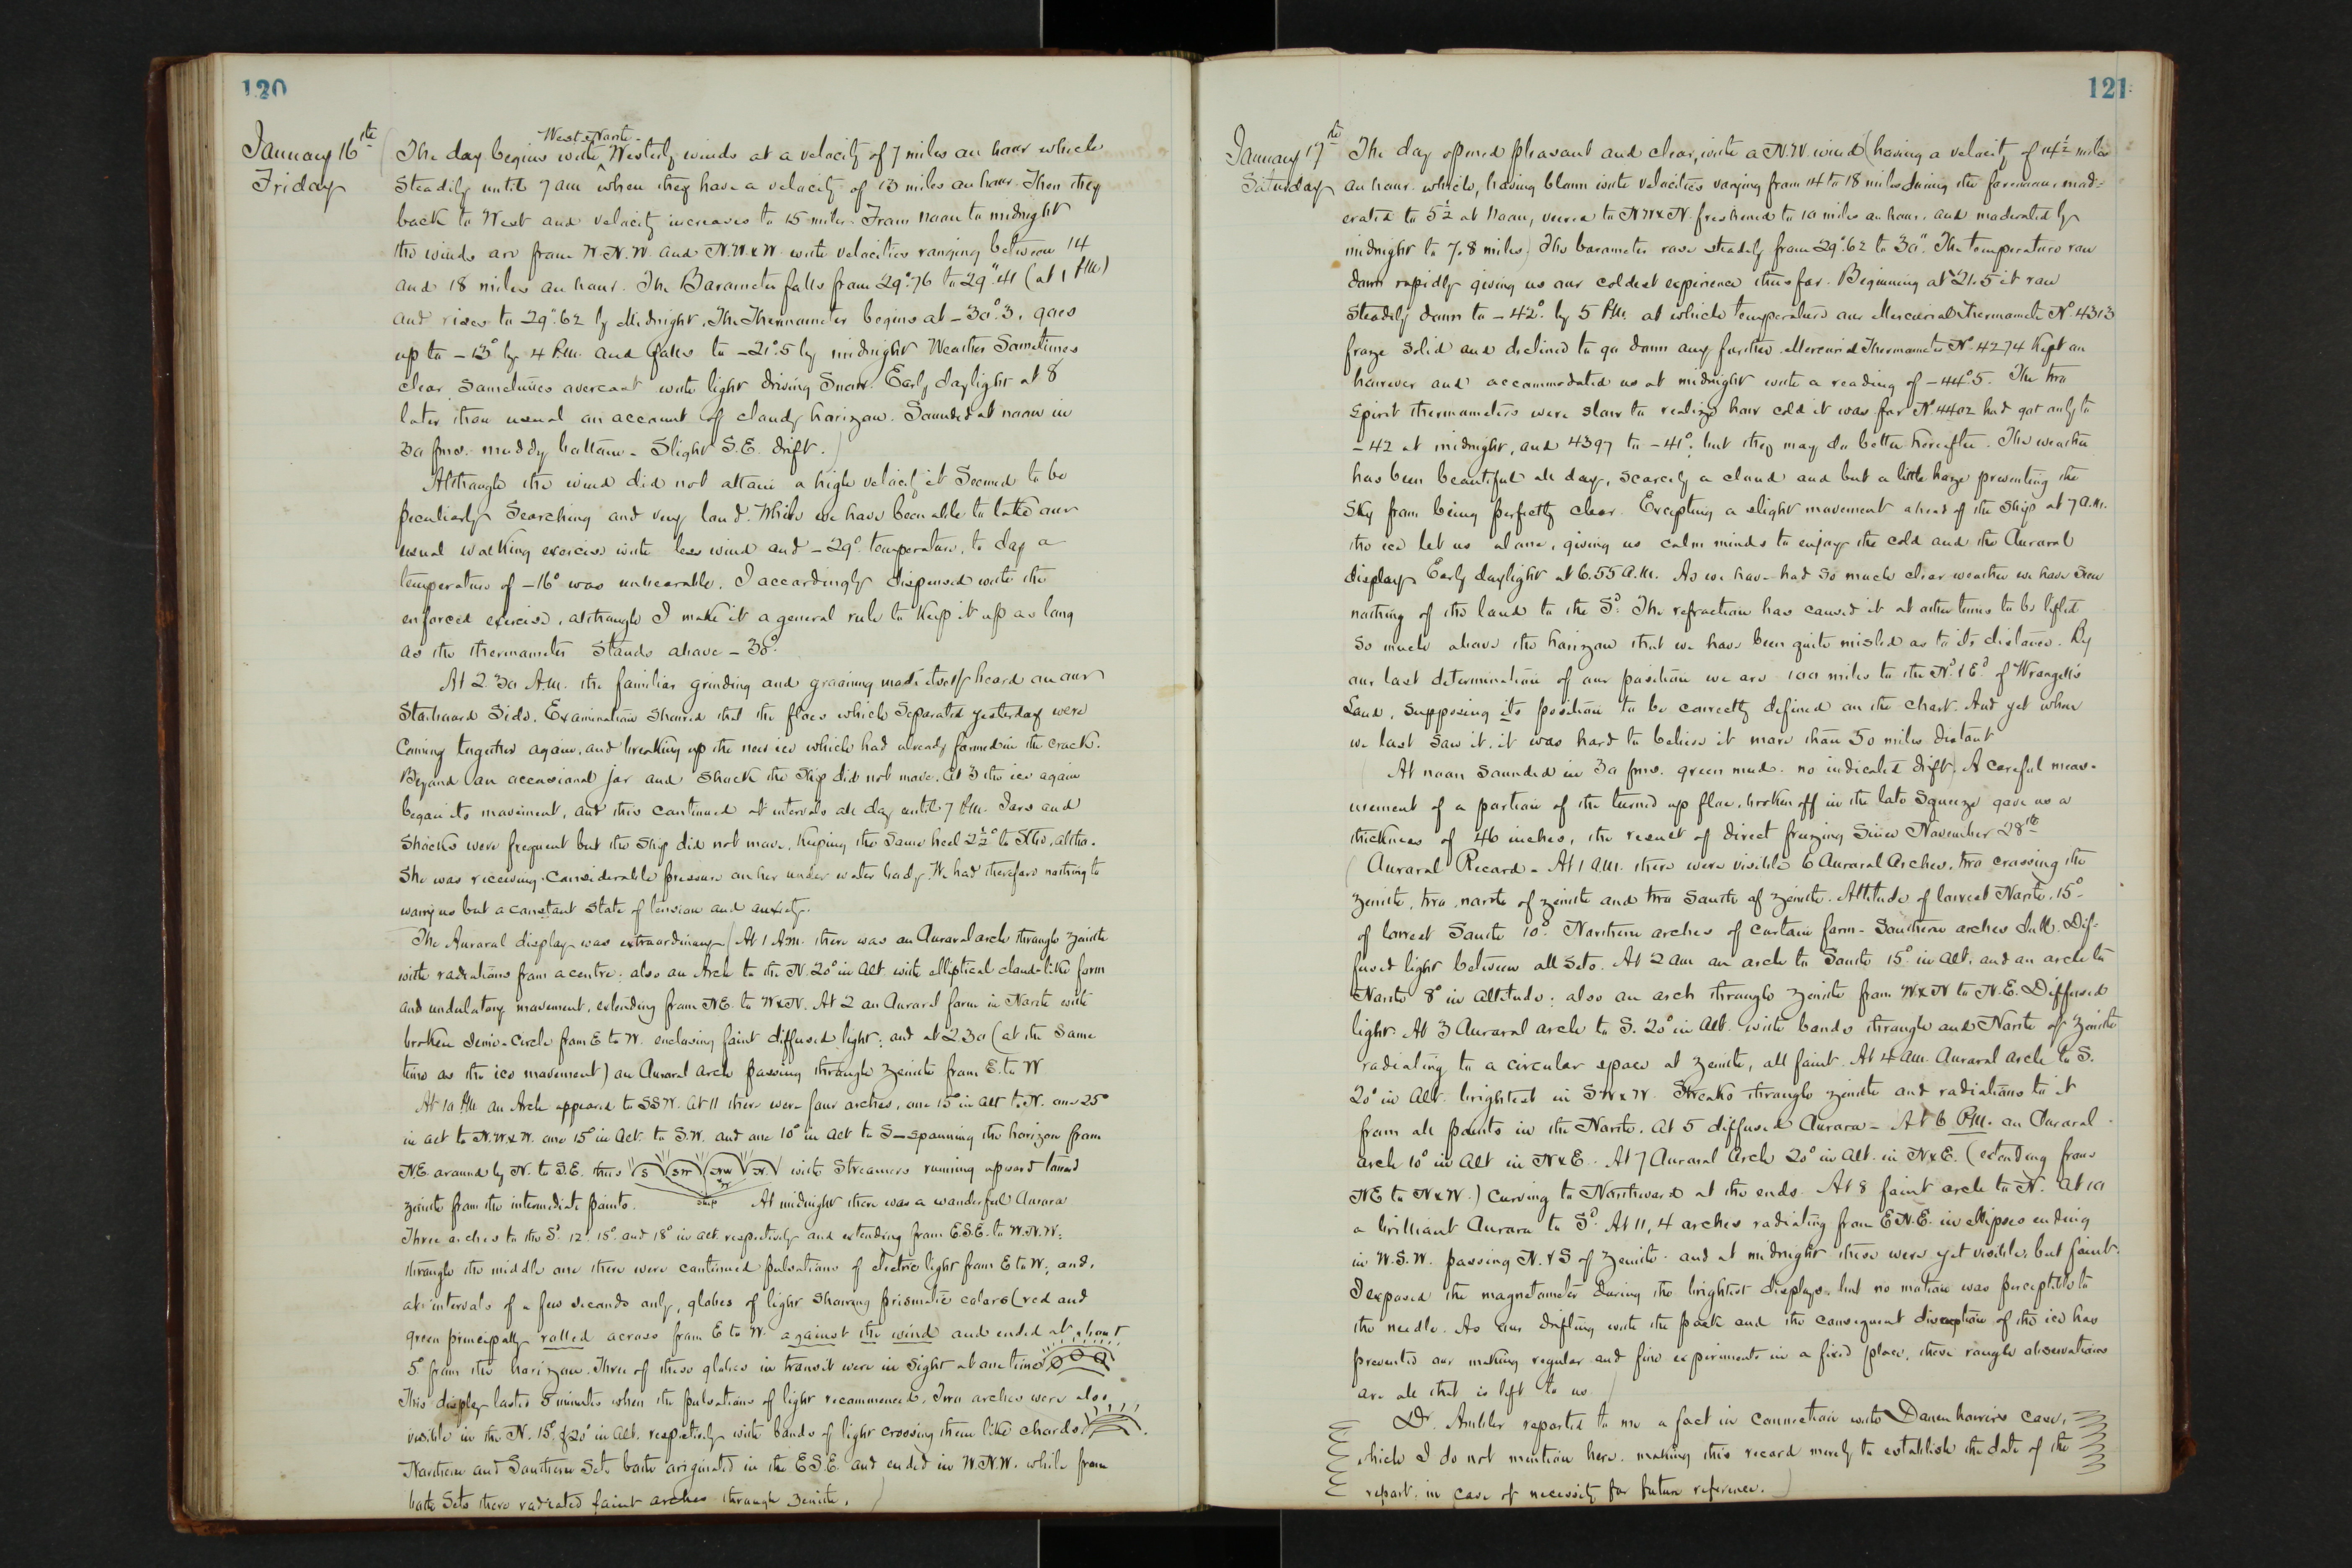 120
January 16th
Friday
West & North
The day begins with Westerly winds at a velocity of 7 miles an hour which
steadily until 7 am when they have a velocity of 13 miles an hour. Then they
back to West and velocity increases to 15 miles. From noon to midnight
the winds are from W.N.W. and N.W.xW. with velocities ranging between 14
and 18 miles an hour. The Barometer falls from 29".76 to 29".41 (at 1 P.M.)
and rises to 29".62 by Midnight. The Thermometer begins at -30°.3, goes
up to -13° by 4 P.M. and falls to -21°.5 by midnight Weather Sometimes
clear, sometimes overcast with light driving Snow. Early daylight at 8
later than usual on account of cloudy horizon. Sounded at noon in
30 fms. muddy bottom - Slight S.E. drift.)
Although the wind did not attain a high velocity it Seemed to be
peculiarly Searching and very loud. While we have been able to take our
usual walking exercise with less wind and -29° temperature, to day a
temperature of -16° was unbearable. I accordingly dispensed with the
enforced exercise, although I make it a general rule to keep it up as long
as the thermometer Stands above -30°.
At 2.30 A.M. the familiar grinding and groaning made itself heard on our
Starboard Side. Examination Showed that the floes which Separated yesterday were
Coming together again, and breaking up the new ice which had already formed in the crack.
Beyond an occasional jar and shock the Ship did not move. At 3 the ice again
began its movement, and this continued at intervals all day until 7 P.M. Jars and
Shocks were frequent but the Ship did not move, keeping the Same heel 2½° to Stbd, altho.
She was receiving considerable pressure on her under water body. We had therefore nothing to
worry us but a constant State of tension and anxiety.
The Auroral display was extraordinary (At 1 A.M. there was an Auroral arch through Zenith
with radiations from a centre: also an Arch to the N. 20° in Alt. with elliptical cloud-like form
and undulatory movement, extending from NE. to WxN. At 2 an Auroral form in North with
broken Semi-circle from E to W. enclosing faint diffused light; and at 2.30 (at the Same
time as the ice movement) an Auroral Arch passing through Zenith from E. to W
At 10 P.M. an Arch appeared to SSW. At 11 there were four arches, one 15° in Alt to N. one 25°
in alt to N.W.xW. one 15° in Alt. to S.W. and one 10° in Alt to S—spanning the horizon from
N.E. around by N. to S.E. thus S SW NW N. with Streamers running upward toward
W
Ship
zenith from the intermediate points. At midnight there was a wonderful Aurora
Three arches to the Sd. 12° 15° and 18° in alt. respectively and extending from E.S.E. to W.N.W:
through the middle one there were continued pulsations of electric light from E to W; and,
at intervals of a few seconds only, globes of light Showing prismatic colors (red and
green principally rolled across from E to W. against the wind and ended at about
5° from the horizon. Three of these globes in transit were in Sight at one time
This display lasted 5 minutes when the pulsations of light recommenced. Two arches were also
visible in the N. 15° & 20° in Alt. respectively with bands of light crossing them like chords.
Northern and Southern Sets both originated in the E.S.E. and ended in W.N.W. while from
both Sets there radiated faint arches through Zenith.)
121
January 17th
Saturday
The day opened pleasant and clear, with a N.W. wind (having a velocity of 14½ miles
an hour. which, having blown with velocities varying from 14 to 18 miles during the forenoon, mod-
erated to 5½ at noon, veered to N.W.xN. freshened to 10 miles an hour, and moderated by
midnight to 7.8 miles) The barometer rose steadily from 29".62 to 30". The temperature ran
down rapidly giving us our coldest experience thus far. Beginning at -21.5 it ran
Steadily down to -42° by 5 P.M. at which temperature our Mercurial Thermometer No. 4313
froze Solid and declined to go down any further. Mercurial Thermometer No. 4274 kept on
however and accommodated us at midnight with a reading of -44°.5. The two
Spirit thermometers were slow to realize how cold it was for No. 4402 had got only to
-42 at midnight, and 4397 to -41°; but they may do better hereafter. The weather
has been beautiful all day, scarcely a cloud and but a little haze preventing the
Sky from being perfectly clear. Excepting a slight movement ahead of the Ship at 7 A.M.
the ice let us alone, giving us calm minds to enjoy the cold and the Auroral
display. Early daylight at 6.55 A.M. As we have had so much clear weather we have Seen
nothing of the land to the Sd. The refraction has caused it at other times to be lifted
so much above the horizon that we have been quite misled as to its distance. By
our last determination of our position we are 100 miles to the Nd & Ed of Wrangell's
Land, Supposing its position to be correctly defined on the chart. And yet when
we last Saw it, it was hard to believe it more than 50 miles distant
(At noon Sounded in 30 fms. green mud. no indicated drift) A careful meas-
urement of a portion of the turned up floe, broken off in the late Squeeze gave us a
thickness of 46 inches, the result of direct freezing Since November 28th
(Auroral Record - At 1 A.M. there were visible 6 Auroral Arches, two crossing the
Zenith, two, north of Zenith and two South of Zenith. Altitude of lowest North, 15°-
of lowest South 10°. Northern arches of curtain form - Southern arches dull. Dif-
fused light between all Sets. At 2 am an arch to South 15° in alt. and an arch to
North 8° in altitude; also an arch through Zenith from WxN to N.E. Diffused
light. At 3 Auroral arch to S. 20° in Alt. with bands through and North of Zenith
radiating to a circular space at Zenith, all faint. At 4 AM. Auroral Arch to S.
20° in Alt. brightest in SWxW. Streaks through zenith and radiations to it
from all points in the North. At 5 diffused Aurora - At 6 P.M. an Auroral
arch 10° in Alt in NxE. At 7 Auroral Arch 20° in Alt. in NxE. (extending from
NE to NxW.) curving to Northward at the ends. At 8 faint arch to N. At 10
a brilliant Aurora to Sd. At 11, 4 arches radiating from E.N.E. in ellipses ending
in W.S.W. passing N. & S of Zenith. and at midnight these were yet visible, but faint.
I exposed the magnetometer during the brightest displays, but no motion was perceptible to
the needle. As our drifting with the pack and the consequent disruption of the ice has
prevented our making regular and fine experiments in a fixed place, these rough observations
are all that is left to us.)
Dr. Ambler reported to me a fact in connection with Danenhower's case,
which I do not mention here, making this record merely to establish the date of the
report. in case of necessity for future reference.)